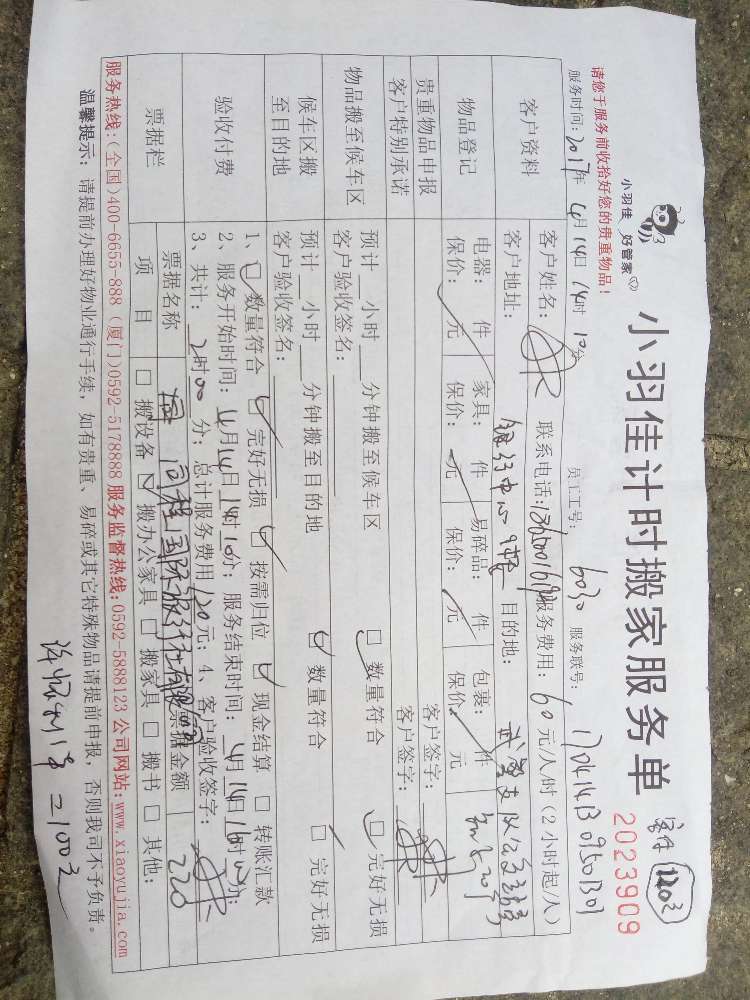 小羽佳 好管家
小羽佳计时搬家服务单
2023909
请您于服务前收拾好您的贵重物品！
服务时间：2017年4月14日14时10分 员工工号：6030 服务联号：
客户资料
客户姓名： 联系电话： 服务费用：60元/人/时（2小时起/人）
客户地址： 目的地：
物品登记
电器： 件 家具： 件 易碎品： 件 包裹： 件
保价： 元 保价： 元 保价： 元 保价： 元
贵重物品申报 客户签字：
客户特别承诺 客户签字：
物品搬至候车区
预计 小时 分钟搬至候车区 □数量符合 □完好无损
客户验收签名：
候车区搬至目的地
预计 小时 分钟搬至目的地 □数量符合 □完好无损
客户验收签名：
验收付费
1、□数量符合 □完好无损 □按需归位 □现金结算 □转账汇款
2、服务开始时间：4月14日14时10分；服务结束时间：4月14日16时10分；
3、共计：2时00分；总计服务费用120元；4、客户验收签字：
票据栏
票据名称 票据金额 220
项目 □搬设备 □搬办公家具 □搬家具 □搬书 □其他：
服务热线：（全国）400-6655-888（厦门）0592-5178888 服务监督热线：0592-5888123 公司网站：www.xiaoyujia.com
温馨提示：请提前办理好物业通行手续，如有贵重、易碎或其它特殊物品请提前申报，否则我司不予负责。